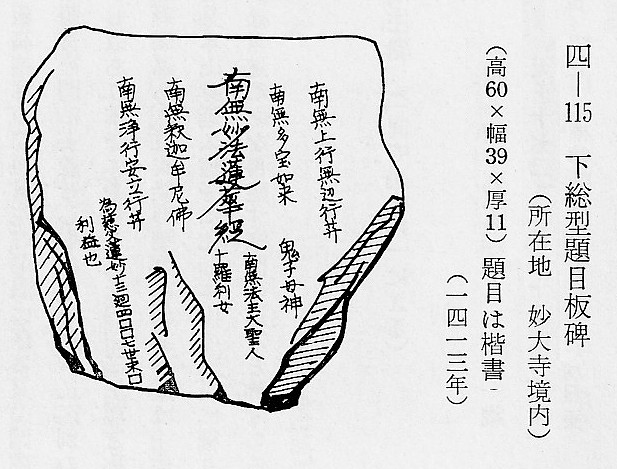 四―115 下総型題目板碑
(所在地 妙大寺境内)
(高60×幅39×厚11) 題目は楷書
(一四一三年)
南無上行無辺行井
南無多宝如来
鬼子母神
南無妙法蓮華経
南無法主大聖人
十羅利女
南無釈迦牟尼佛
南無浄行安立行井
利益也